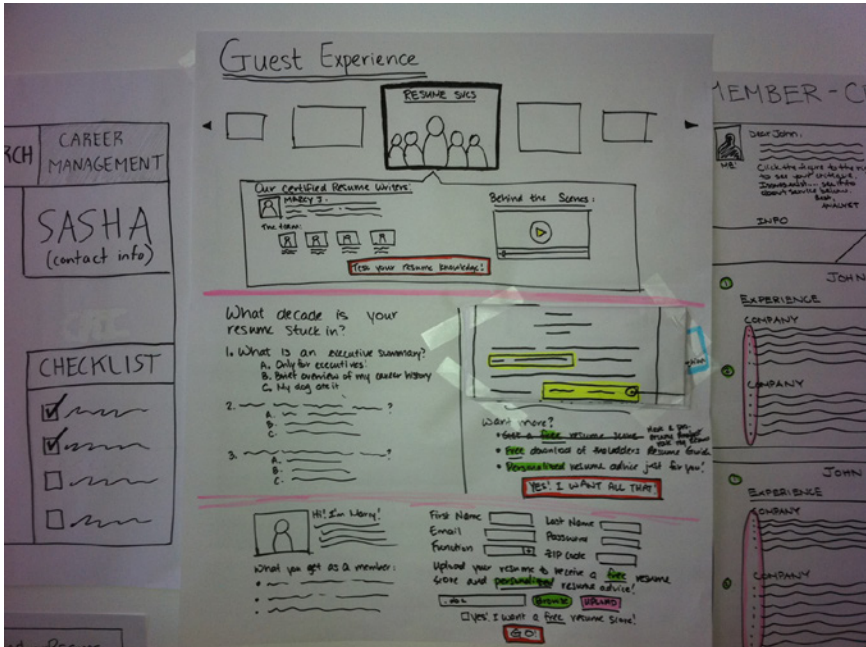 Guest Experience
RESUME SVCS
Our Certified Resume Writers:
MARCY J.
The team:
Behind the Scenes:
Test your resume knowledge!
What decade is your
resume stuck in?
1. What is an executive summary?
A. Only for executives!
B. Brief overview of my career history
C. My dog ate it
2. ?
A.
B.
C.
3. ?
A.
B.
C.
Want more?
• Get a free resume score
• Free download of theladders Resume Guide
• Personalized resume advice just for you!
YES! I WANT ALL THAT!
Hi! I'm Marcy!
What you get as a member:
First Name
Last Name
Email
Password
Function
ZIP Code
Upload your resume to receive a free resume
score and personalized resume advice!
.doc
Browse
UPLOAD
Yes! I want a free resume score!
GO!
RCH
CAREER
MANAGEMENT
SASHA
(contact info)
CHECKLIST
MEMBER - C
Dear John,
ME!
Click the figure to the
to see your critique.
about service below.
Best,
ANALYST
INFO
1
JOHN
EXPERIENCE
COMPANY
2
COMPANY
JOHN
EXPERIENCE
COMPANY
COMPANY